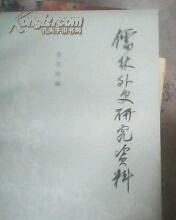 Kongfz.com
孔夫子旧书网
儒林外史研究资料
李汉秋编